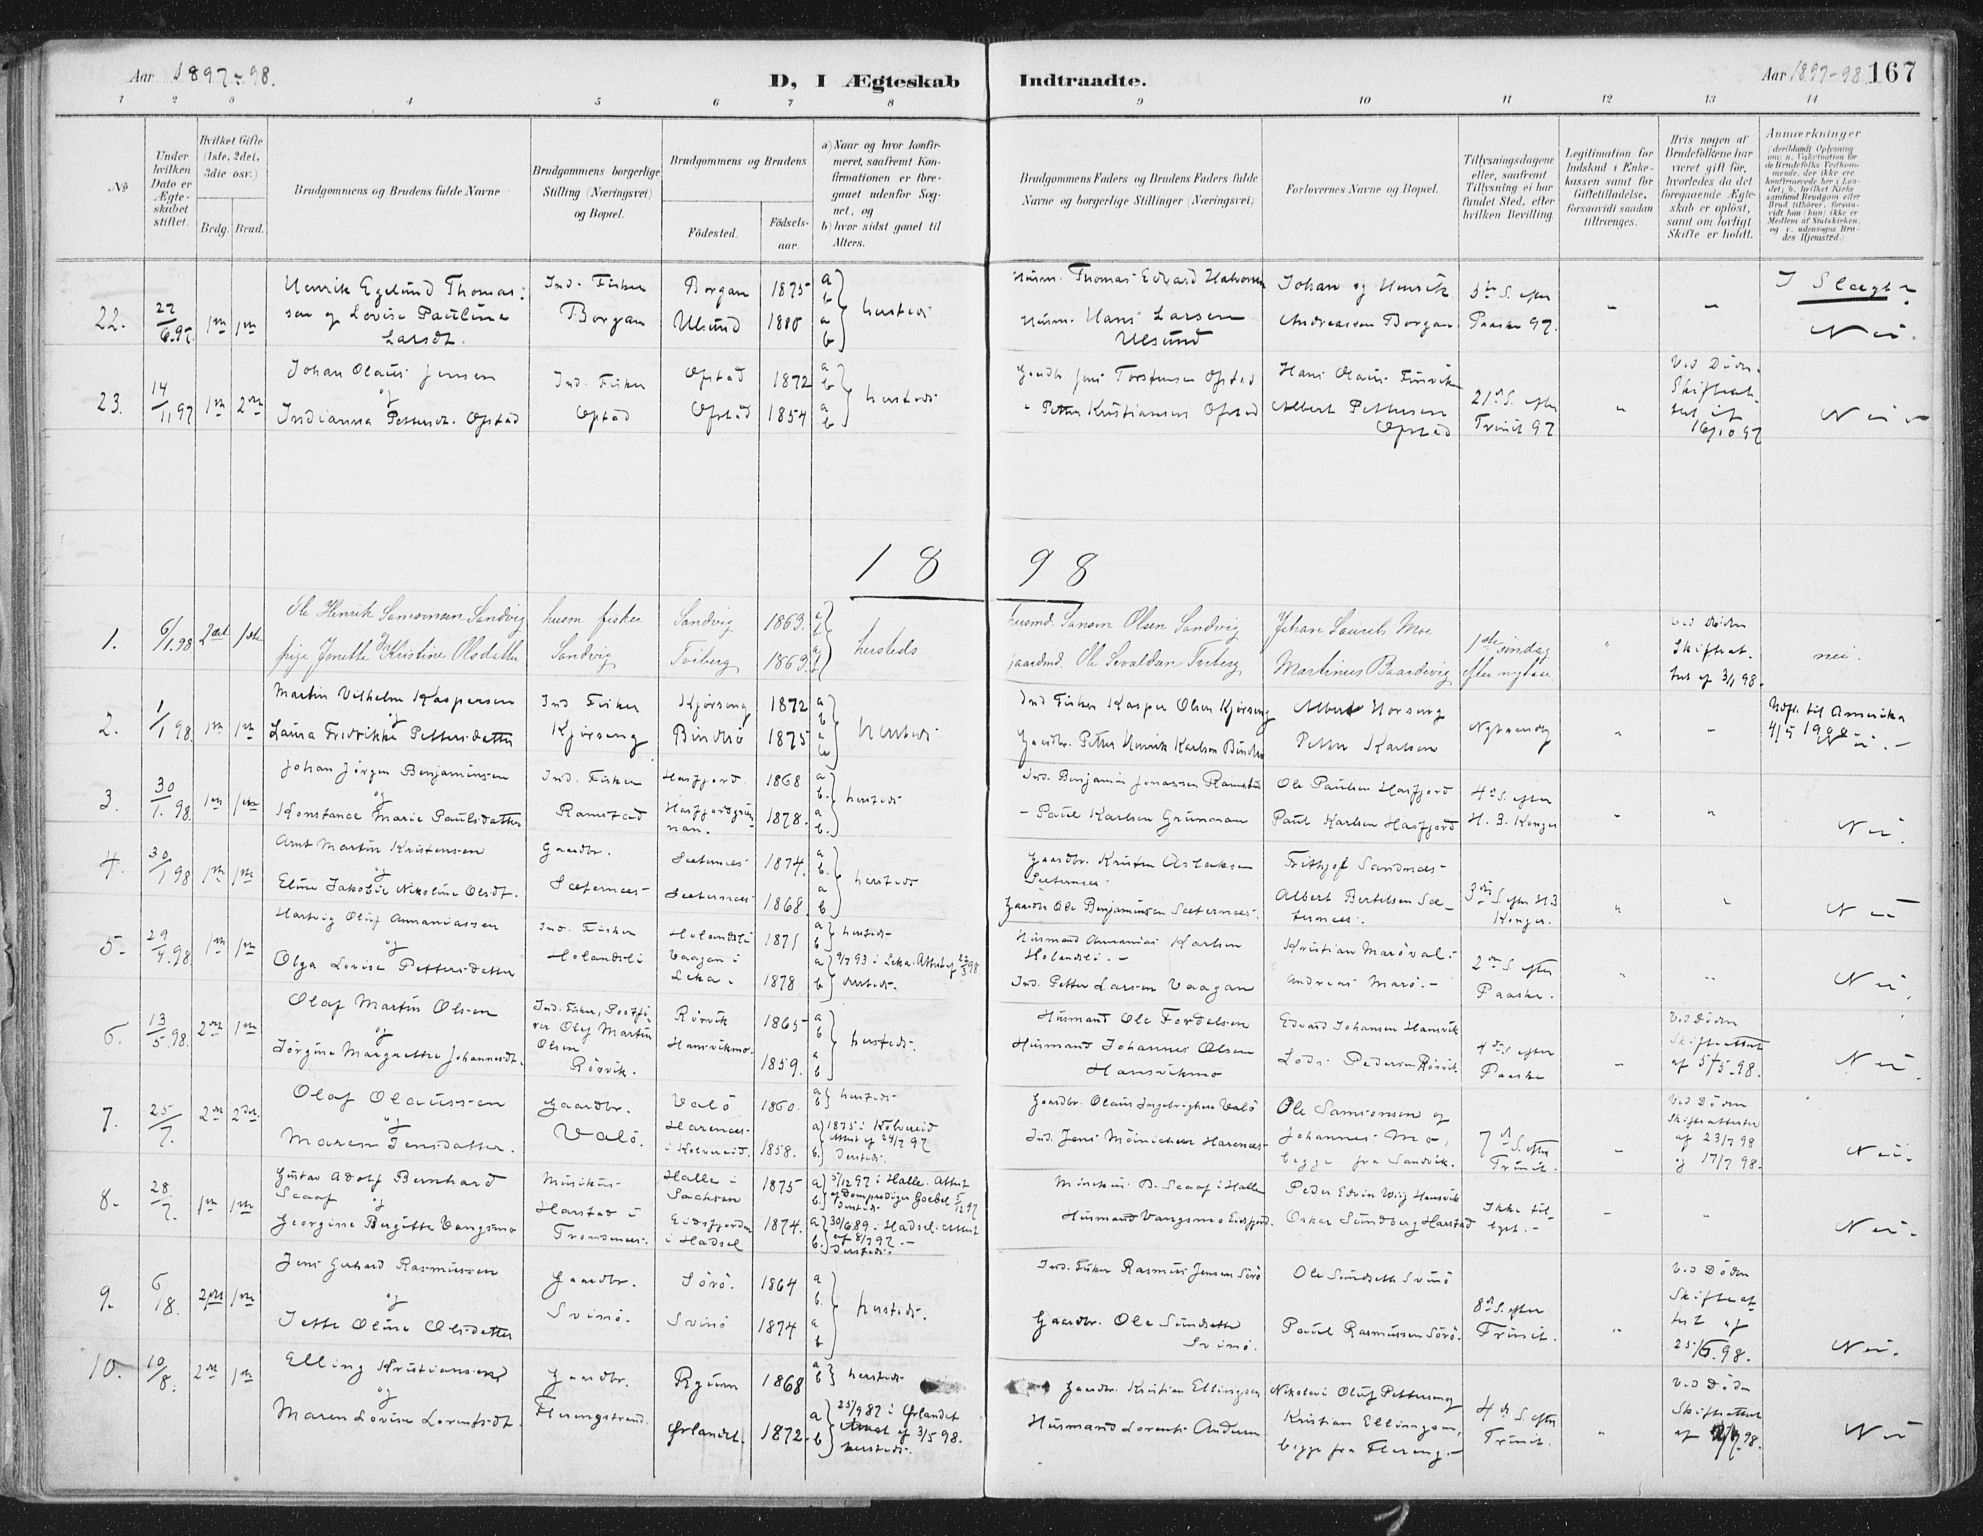 Aar 1897-98.
D, I Ægteskab Indtraadte.
Aar 1897-98 167
1 2 3 4 5 6 7 8 9 10 11 12 13 14
No
Under hvilken Dato er Ægteskabet stiftet.
Hvilket Gifte (1ste, 2det, 3die osv.)
Brdg. Brud.
Brudgommens og Brudens fulde Navne
Brudgommens borgerlige Stilling (Næringsvei) og Bopæl.
Brudgommens og Brudens
Fødested.
Fødselsaar.
a) Naar og hvor konfirmeret, saafremt Konfirmationen er foregaaet udenfor Sognet, og
b) hvor sidst gaaet til Alters.
Brudgommens Faders og Brudens Faders fulde Navne og borgerlige Stillinger (Næringsvei)
Forlovernes Navne og Bopæl.
Tillysningsdagene eller, saafremt Tillysning ei har fundet Sted, efter hvilken Bevilling.
Legitimation for Indskud i Enkekassen samt for Giftetilladelse, forsaavidt saadan tiltrænges.
Hvis nogen af Brudefolkene har været gift før, hvorledes da det foregaaende Ægteskab er opløst, samt om lovligt Skifte er holdt.
Anmærkninger
22. 22/6.97. 1ste 1ste Henrik Egelund Thomassen og Lovise Pauline Larsdt.
Ind. Fisker Borgan
Borgan 1875
Ulsund 1880
a b a b hersteds
Husm. Thomas Edvard Halvorsen
Husm. Hans Larsen Ulsund
Johan og Henrik Andreassen Borgan
3die S. efter Paaske 97.
" "
I Slægt?
Nei.
23. 14/11 97 1ste 2den Johan Olaus Jensen og Indianna Pettersdt. Opstad
Ind. Fisker Opstad
Opstad 1872
Opstad 1854
a b a b hersteds
Gaardb. Jens Torstensen Opstad
" Petter Kristiansen Opstad
Hans Olaus Finvik
Albert Pettersen Opstad
21de S. efter Trinit 97
"
Ved Døden. Skifteattest af 16/10 97
Nei
18 98
1. 6/1.98 2det 1ste Ole Henrik Samsonsen Sandvig
pige Jonette Kristine Olsdatter
husm fisker Sandvig
Sandvig 1869.
Tviberg 1869.
a b a b hersteds
husmd. Samson Olsen Sandvig
gaardmd. Ole Sevaldsen Tviberg
Johan Laurits Moe
Martinus Baardvig
1ste søndag efter nytaar
"
ved Døden Skifteattest af 3/1 98.
nei.
2. 1/1 98. 1ste 1ste Martin Vilhelm Kaspersen og Laura Fredrikke Pettersdatter
Ind Fisker Kjørseng
Kjørseng 1872
Bindsø 1875
a b a b hersteds
Ind Fisker Kasper Olsen Kjørseng
Gaardbr. Petter Henrik Karlsen Bindsø
Albert Horseng
Petter Karlsen
Nytaarsdg
" "
Udfl. til Amerika 4/5 1900
Nei.
3. 30/1. 98. 1ste 1ste Johan Jørgen Benjaminsen og Konstance Marie Paulsdatter
Ind. Fisker Ramstad
Hasfjord. 1868
Hasfjordgrunnan. 1878.
a b. a b. hersteds
Ind. Benjamin Jonassen Ramstad
" Paul Karlsen Grunnan
Ole Paulsen Hasfjord
Paul Karlsen Hasfjord
4de S. efter H. 3. Konger
" "
Nei.
4. 30/1 98 1ste 1ste Arnt Martin Kristensen og Eline Jakobie Nikoline Olsdt.
Gaardbr. Sæternæs
Sæternæs 1874.
Sæternæs 1868.
a b. a b hersteds
Gaardbr. Kristen Aslaksen Sæternæs
Gaardbr Ole Benjaminsen Sæternæs.
Frithjof Sandnæs
Albert Bertelsen Sæternæs.
3die S efter H 3 Konger.
" "
Nei
5. 29/4.98 1ste 1ste Hartvig Oluf Annaniassen og Olga Lovise Pettersdatter
Ind. Fisker Holandsli
Holandsli 1871
Vaagan i Leka. 1878
a b hersteds
a 9/7 93 i Leka. Attest af 29/3 98.
b dersteds.
Husmand Annanias Karlsen Holandsli.
Ind. Petter Larsen Vaagan
Kristian Marøval
Andreas Marø.
2den S efter Paaske.
" "
Nei.
6. 13/5.98. 2den 1ste Olaf Martin Olsen og Jørgine Margrethe Johannesdt.
Ind. Fisker, Postfører Oluf Martin Olsen Rørvik.
Rørvik 1865
Hansvikmo. 1859.
a b a b hersteds.
Husmand Ole Fordelsen
Husmand Johannes Olsen Hansvikmo
Edvard Johansen Hansvik
Lodv. Pedersen Rørvik
4de S efter Paaske
"
Ved Døden Skifteattest af 5/5-98.
Nei.
7. 25/7. 2den 2den Olaf Olaussen og Maren Jensdatter.
Gaardbr. Valø.
Valø 1860.
Harenæs i Kolvereid. 1858.
a b hersteds
a) 1875 i Kolvereid Attest af 24/7 97
b. dersteds.
Gaardbr. Olaus Ingebrigtsen Valø
Ind. Jens Meinicher Harenæs
Ole Samsonsen og Johannes Mo, begge fra Sandvik.
7de S. efter Trinit.
"
Ved Døden Skifteattester af 23/7 98 og 17/7 98.
Nei.
8. 28/7. 1ste 1ste Gustav Adolf Bernhard Scaaf og Georgine Bergitte Vangsmo
Musikus Harstad i Trondenæs.
Halle i Sachsen 1875
Eidsfjorden i Hadsel 1874.
a) 5/12 97 i Halle. Attest af Domprediger Goebel 5/12 97
b. dersteds
a) 30/6 89 i Hadsel. Attest af 8/7 97.
b. dersteds.
Musikus B. Scaaf i Halle
Husmand Vangsmo Eidsfjord.
Peder Edvin Wiig Hansvik
Oskar Sundberg Harstad
Ikke tillyst.
" "
Nei.
9. 6/8. 2den 1ste Jens Gerhard Rasmussen og Jette Oline Olsdatter
Gaardbr. Svinø.
Sørø. 1864
Svinø 1874
a b. a b hersteds.
Ind. Fisker Rasmus Jensen Sørø
Gaardbr. Ole Sundseth Svinø.
Ole Sundseth Svinø
Paul Rasmussen Sørø.
8de S. efter Trinit.
"
Ved Døden Skifteattest af 25/6.98.
Nei.
10. 10/8. 2den 1ste Elling Kristiansen og Maren Lovise Lorentsdt.
Gaardbr. Flerengstrand.
Ryum 1868
Ørlandet. 1872.
a b hersteds
a 25/9 87 i Ørlandet Attest af 3/5 98.
b hersteds.
Gaardbr. Kristian Ellingsen
Husmand Lorents Andersen
Nikolai Oluf Pettersen og Kristian Ellingsen, begge fra Flereng.
4de S. efter Trinit.
"
Ved Døden Skifteattest af 98.
Nei